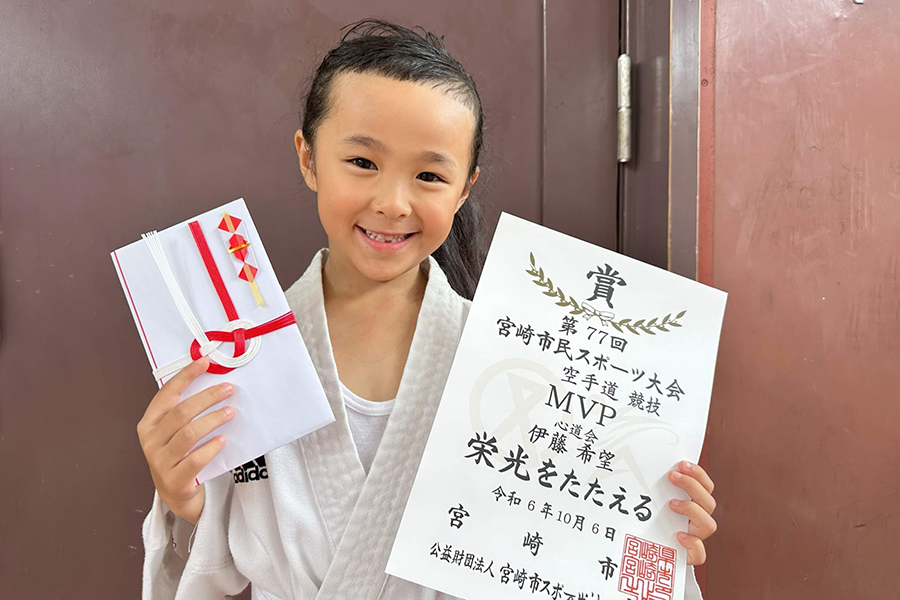 賞
第77回
宮崎市民スポーツ大会
空手道 競技
MVP
心道会
伊藤 希望
栄光をたたえる
令和6年10月6日
宮崎市
公益財団法人 宮崎市スポ
adidas